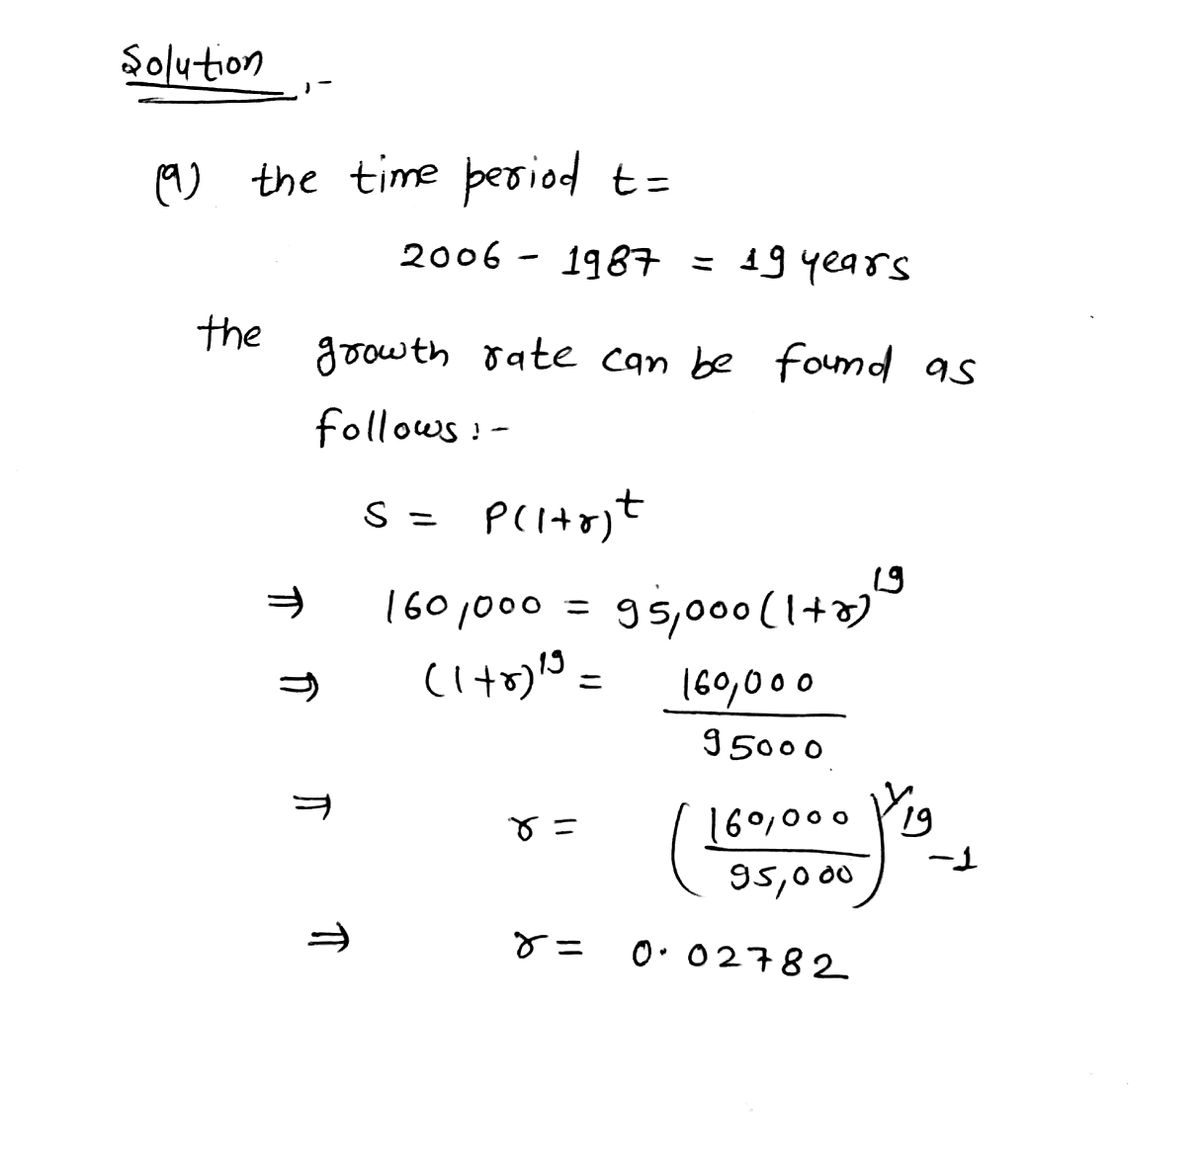 Solution :-
(a) the time period t =
2006 - 1987 = 19 years
the growth rate can be found as
follows :-
S = P(1+r)^t
⇒ 160,000 = 95,000(1+r)^19
⇒ (1+r)^19 = 160,000 / 95000
⇒ r = (160,000 / 95,000)^1/19 - 1
⇒ r = 0.02782